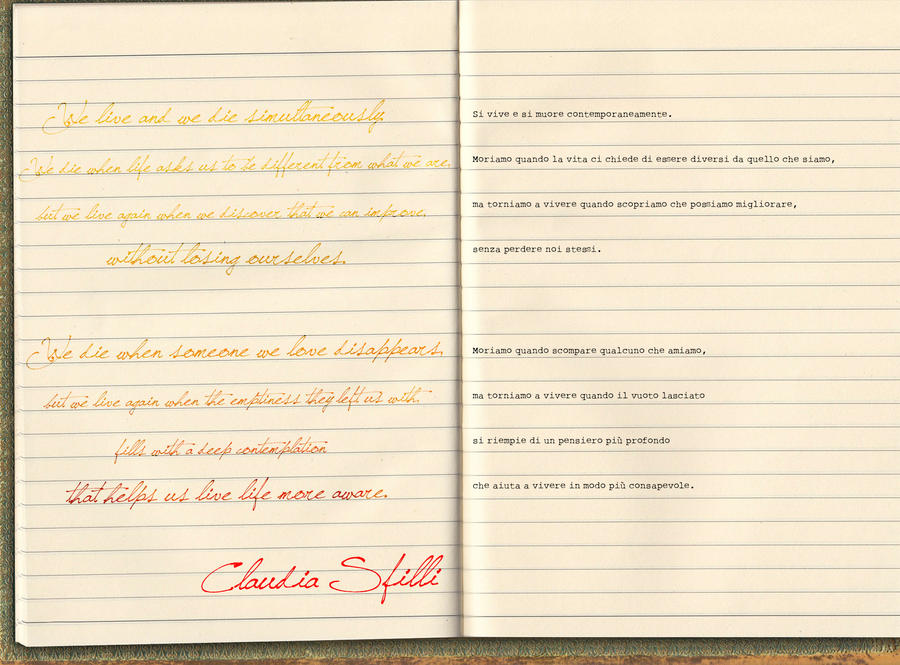 We live and we die simultaneously.
We die when life asks us to be different from what we are,
but we live again when we discover that we can improve,
without losing ourselves.
We die when someone we love disappears,
but we live again when the emptiness they left us with
fills with a deep contemplation
that helps us live life more aware.
Claudia Sfilli
Si vive e si muore contemporaneamente.
Moriamo quando la vita ci chiede di essere diversi da quello che siamo,
ma torniamo a vivere quando scopriamo che possiamo migliorare,
senza perdere noi stessi.
Moriamo quando scompare qualcuno che amiamo,
ma torniamo a vivere quando il vuoto lasciato
si riempie di un pensiero più profondo
che aiuta a vivere in modo più consapevole.